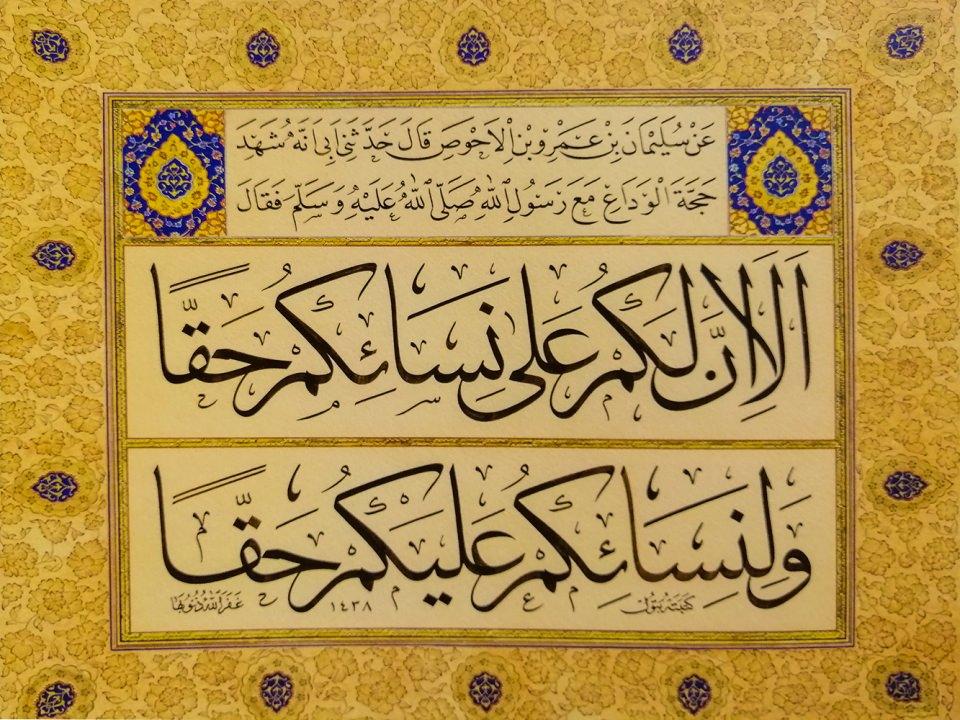 عَنْ سُلَيْمَانَ بْنِ عَمْرِو بْنِ الْاَحْوَصِ قَالَ حَدَّثَنِي اَبِي اَنَّهُ شَهِدَ
حَجَّةَ الْوَدَاعِ مَعَ رَسُولِ اللّٰهِ صَلَّى اللّٰهُ عَلَيْهِ وَسَلَّمَ فَقَالَ
اَلَا اِنَّ لَكُمْ عَلَى نِسَائِكُمْ حَقًّا
وَلِنِسَائِكُمْ عَلَيْكُمْ حَقًّا
كَتَبَتْهُ بَتُول ١٤٣٨ غَفَرَ اللّٰهُ ذُنُوبَهَا